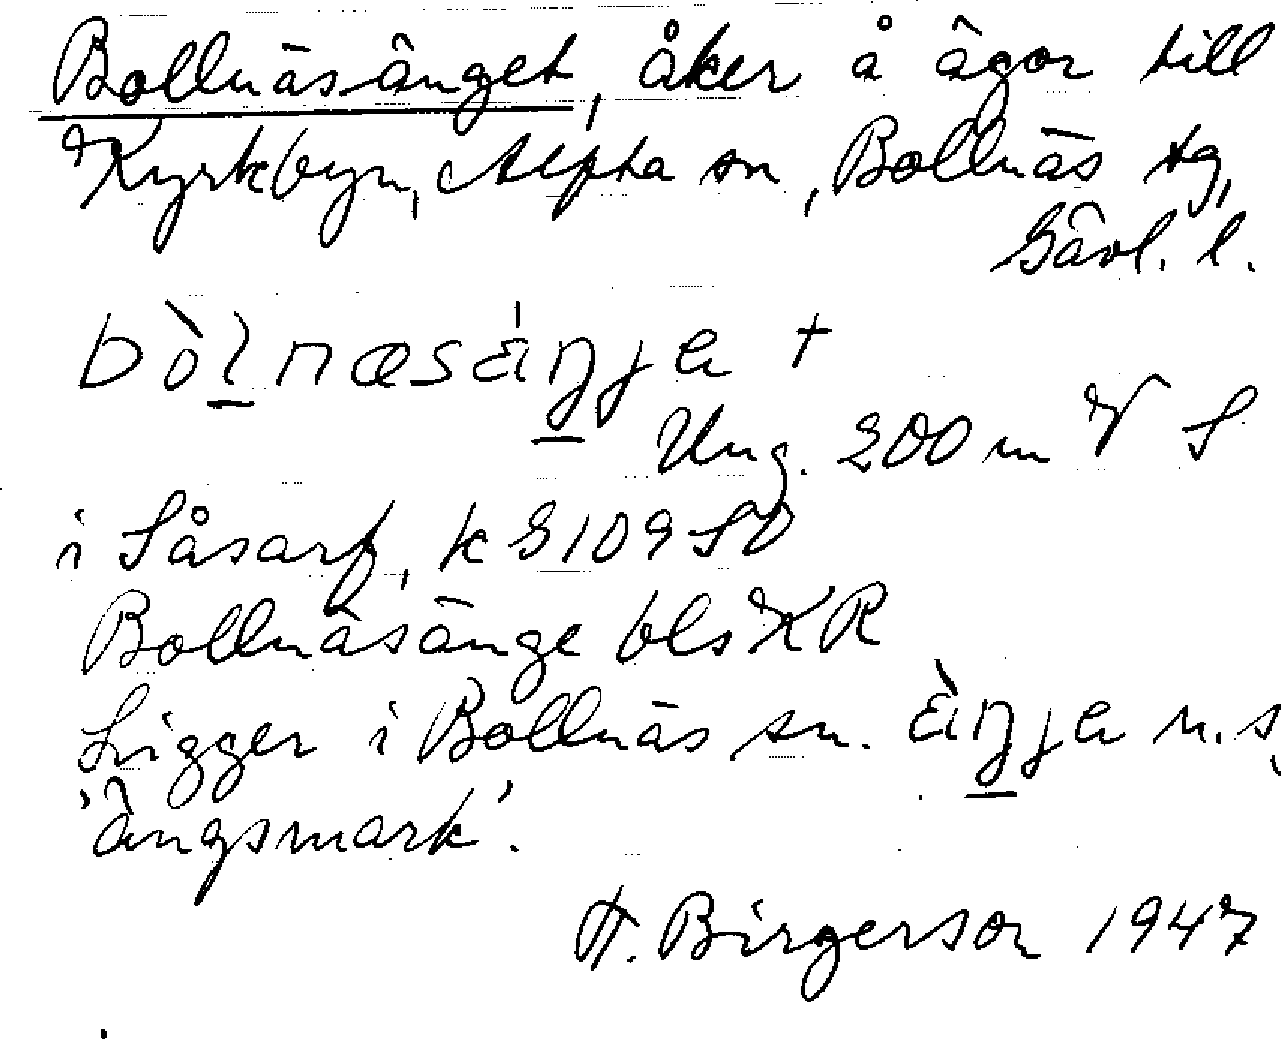 Bollnäsänget, åker å ägor till
Kyrkbyn, Alfta sn, Bollnäs tg,
Gävl. l.
bòlnæsäŋja +
Ung. 200 m V S
i Såsarf, k 9109 SO
Bollnäsänge bls KR
Ligger i Bollnäs sn. äŋja n. s,
'ängsmark'.
H. Birgerson 1947